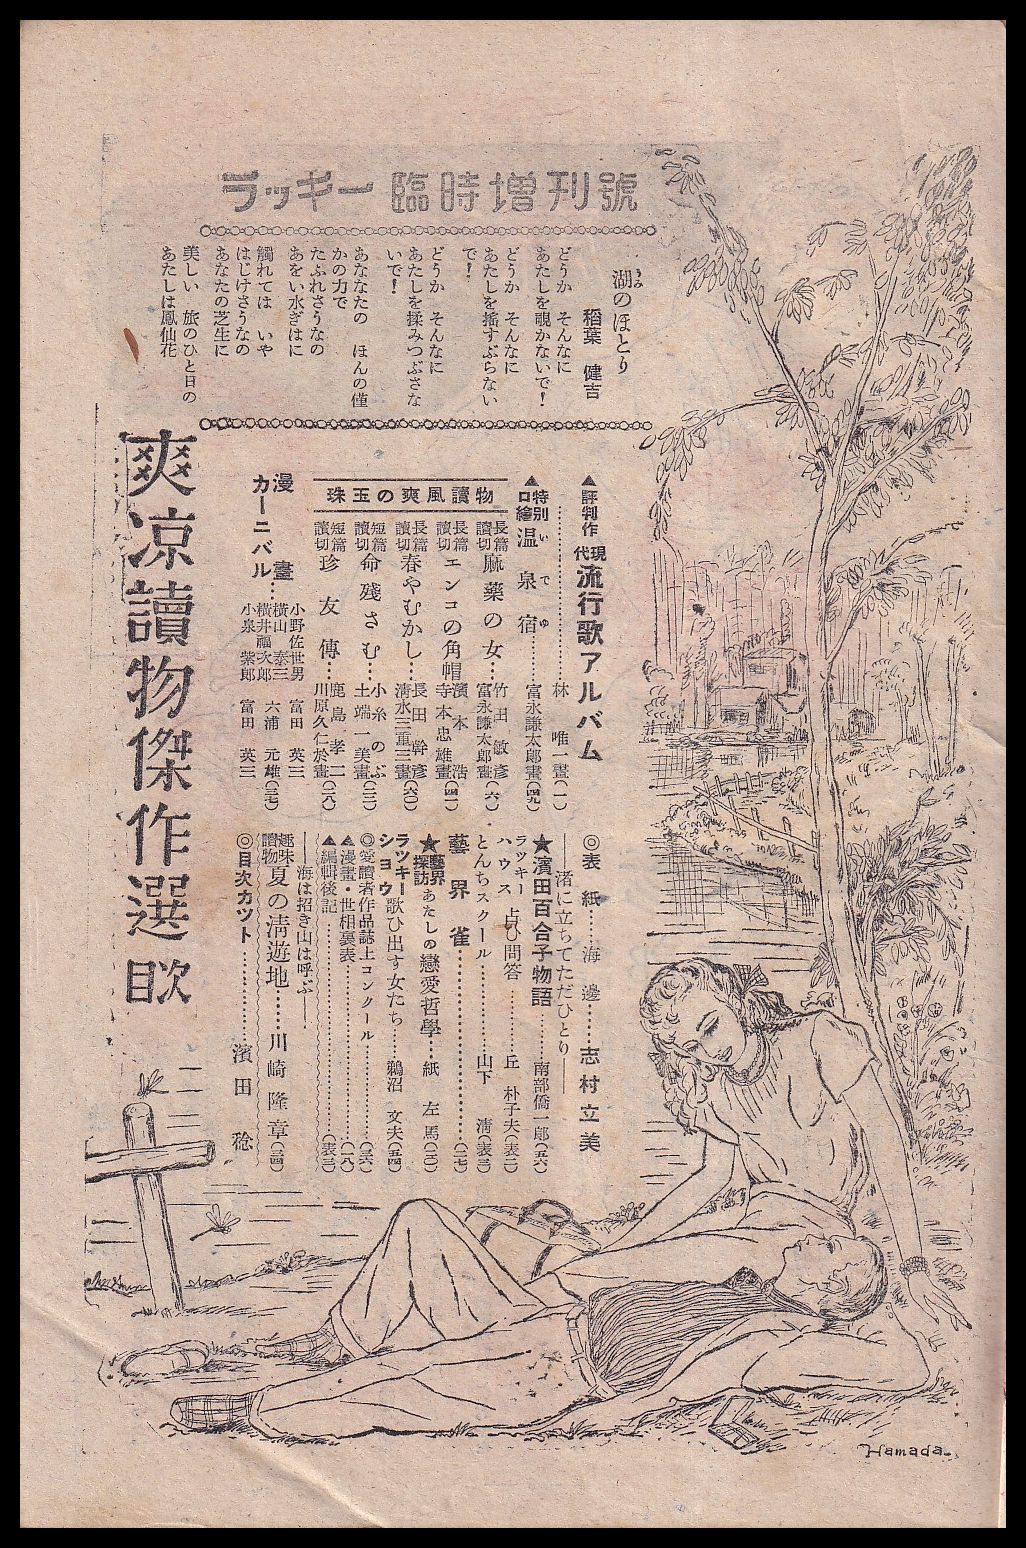 ラッキー 臨時増刊號
湖のほとり
うみ
稲葉 健吉
どうか そんなに
あたしを覗かないで!
どうか そんなに
あたしを搖すぶらない
で!
どうか そんなに
あたしを揉みつぶさな
いで!
あななたの ほんの僅
かの力で
たふれさうなの
あをい水ぎはに
觸れては いや
はじけさうなの
あなたの芝生に
美しい 旅のひと日の
あたしは鳳仙花
▲評判作 現代 流行歌アルバム
…………林 唯一畫(一)
▲特別口繪 温泉宿………富永謙太郎畫(四九)
いでゆ
珠玉の爽風讀物
長篇讀切 麻藥の女…竹田敏彦 富永謙太郎畫(六)
長篇讀切 エンコの角帽 濱本浩 寺本忠雄畫(四一)
長篇讀切 春やむかし…長田幹彦 清水三重三畫(六〇)
短篇讀切 命残さむ…小糸のぶ 土端一美畫(三二)
短篇讀切 珍友傳…鹿島孝二 川原久仁於畫(二八)
漫畫カーニバル…
小野佐世男 富田英三
横山泰三
横井福次郎 六浦元雄(三七)
小泉紫郎 富田英三
◎表紙……海邊……志村立美
――渚に立ちてただひとり――
★濱田百合子物語………南部僑一郎(五六)
ラッキーハウス 占ひ問答…………丘 朴子夫(表二)
とんちスクール…………山下 清(表三)
藝界雀……………………(二七)
★藝界探訪 あたしの戀愛哲學…紙 左馬(二〇)
ラツキーシヨウ 歌ひ出す女たち……鵜沼 文夫(五四)
◎愛讀者作品誌上コンクール……………(三六)
▲漫畫・世相裏表……………………(一八)
▲編輯後記……………………………(表三)
――海は招き山は呼ぶ――
趣味讀物 夏の清遊地……川崎隆章(二四)
◎目次カツト……………濱田 稔
爽凉讀物傑作選 目次
Hamada